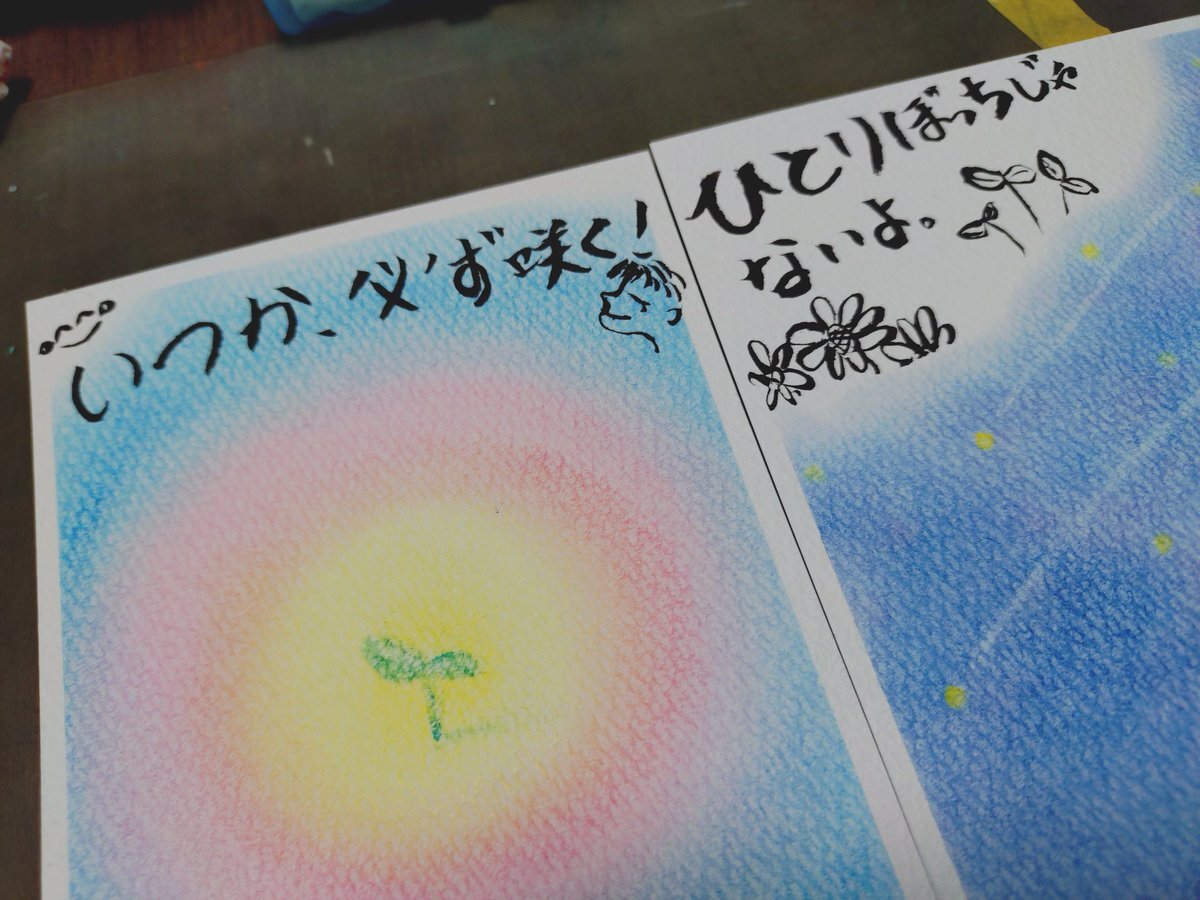 いつか、必ず咲く!
ひとりぼっちじゃ
ないよ。